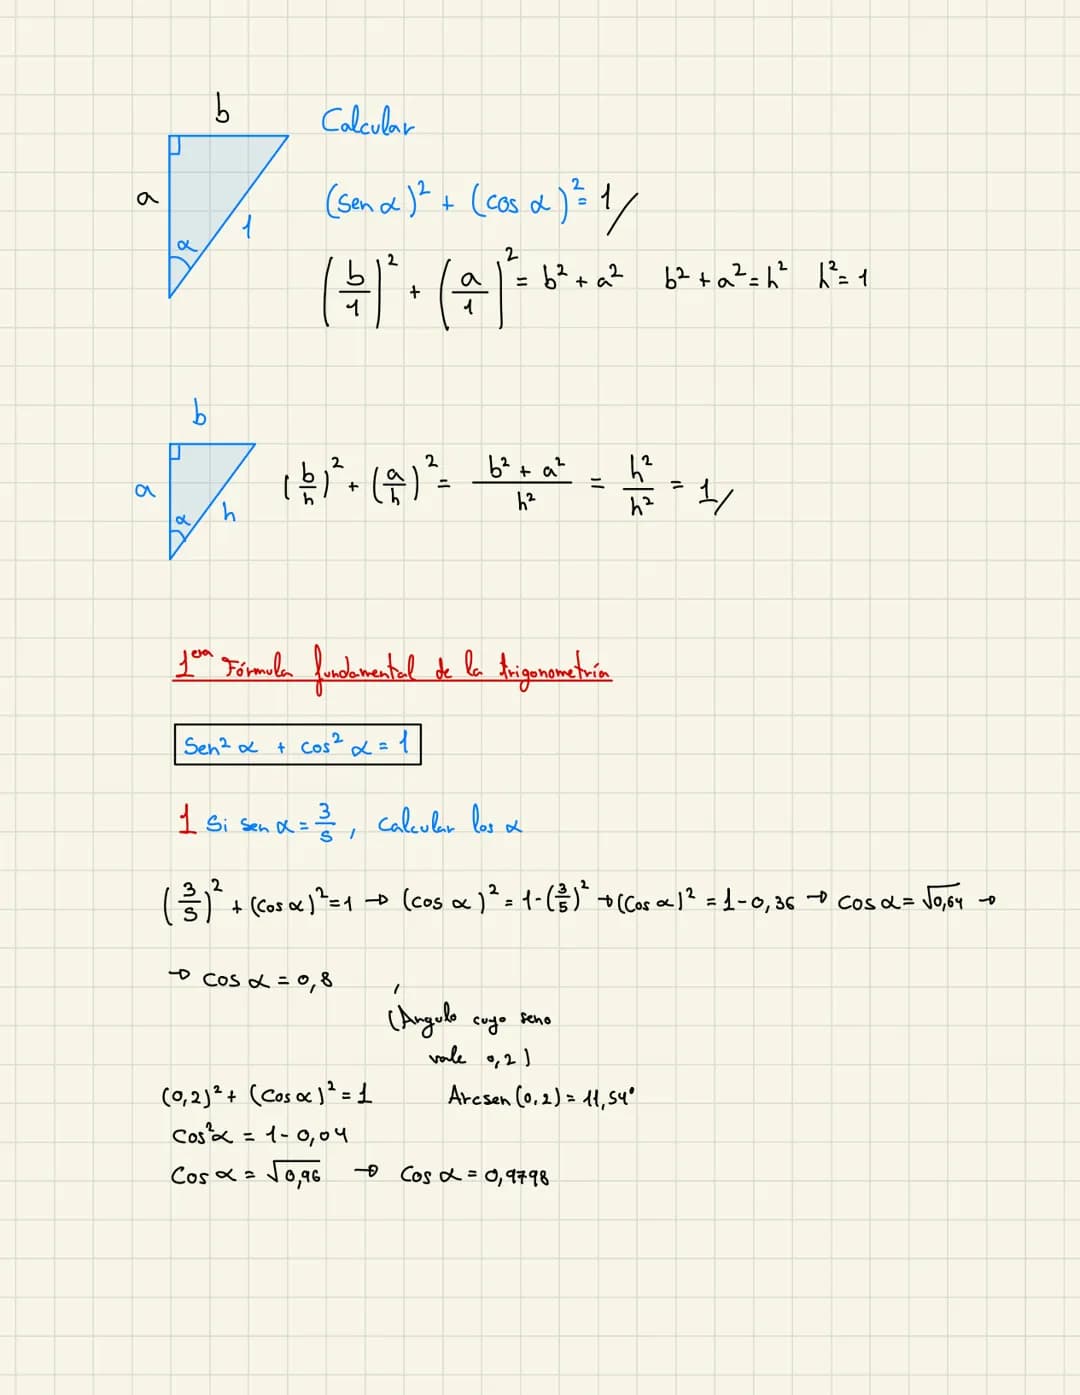 b
Calcular
a
(sen α)² + (cos α)² = 1
α
1
(b/1)² + (a/1)² = b² + a² b² + a² = h² h² = 1
b
a
α
h
(b/h)² + (a/h)² = (b² + a²)/h² = h²/h² = 1
1era Fórmula fundamental de la trigonometría
Sen² α + cos² α = 1
1 Si sen α = 3/5, calcular los α
(3/5)² + (cos α)² = 1 → (cos α)² = 1 - (3/5)² → (cos α)² = 1 - 0,36 → cos α = √0,64 →
→ cos α = 0,8
(Ángulo cuyo seno
vale 0,2)
(0,2)² + (cos α)² = 1 Arcsen (0,2) = 11,54°
Cos² α = 1 - 0,04
Cos α = √0,96 → Cos α = 0,9798